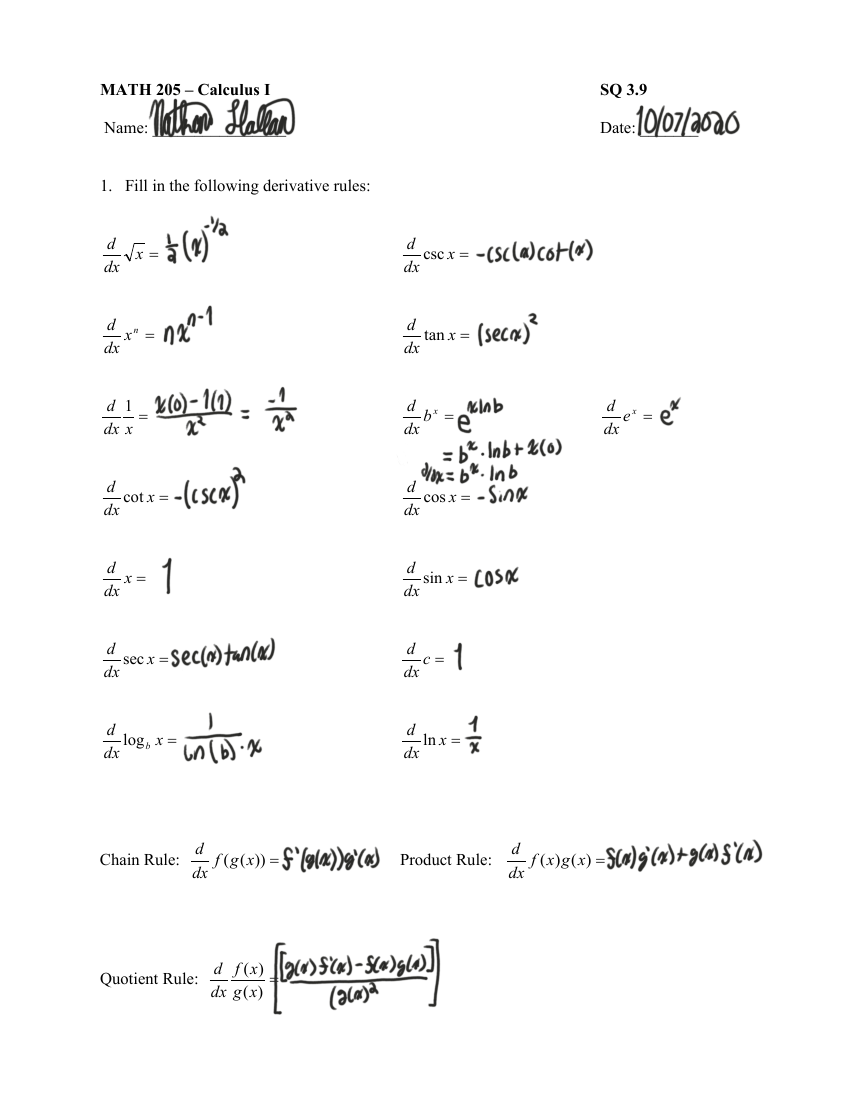 MATH 205 – Calculus I SQ 3.9
Name: Nathan Hallan Date: 10/07/2020
1. Fill in the following derivative rules:
d/dx √x = 1/2 (x)^-1/2 d/dx csc x = -csc(x)cot(x)
d/dx x^n = nx^n-1 d/dx tan x = (secx)^2
d/dx 1/x = x(0)-1(1)/x^2 = -1/x^2 d/dx b^x = e^xlnb d/dx e^x = e^x
= b^x · lnb + x(0)
d/dx = b^x · lnb
d/dx cot x = -(cscx)^2 d/dx cos x = -sinx
d/dx x = 1 d/dx sin x = cosx
d/dx sec x = sec(x)tan(x) d/dx c = 1
d/dx log_b x = 1/ln(b)·x d/dx ln x = 1/x
Chain Rule: d/dx f(g(x)) = f'(g(x))g'(x) Product Rule: d/dx f(x)g(x) = f(x)g'(x)+g(x)f'(x)
Quotient Rule: d/dx f(x)/g(x) = [[g(x)f'(x)-f(x)g(x)]/(g(x)^2]